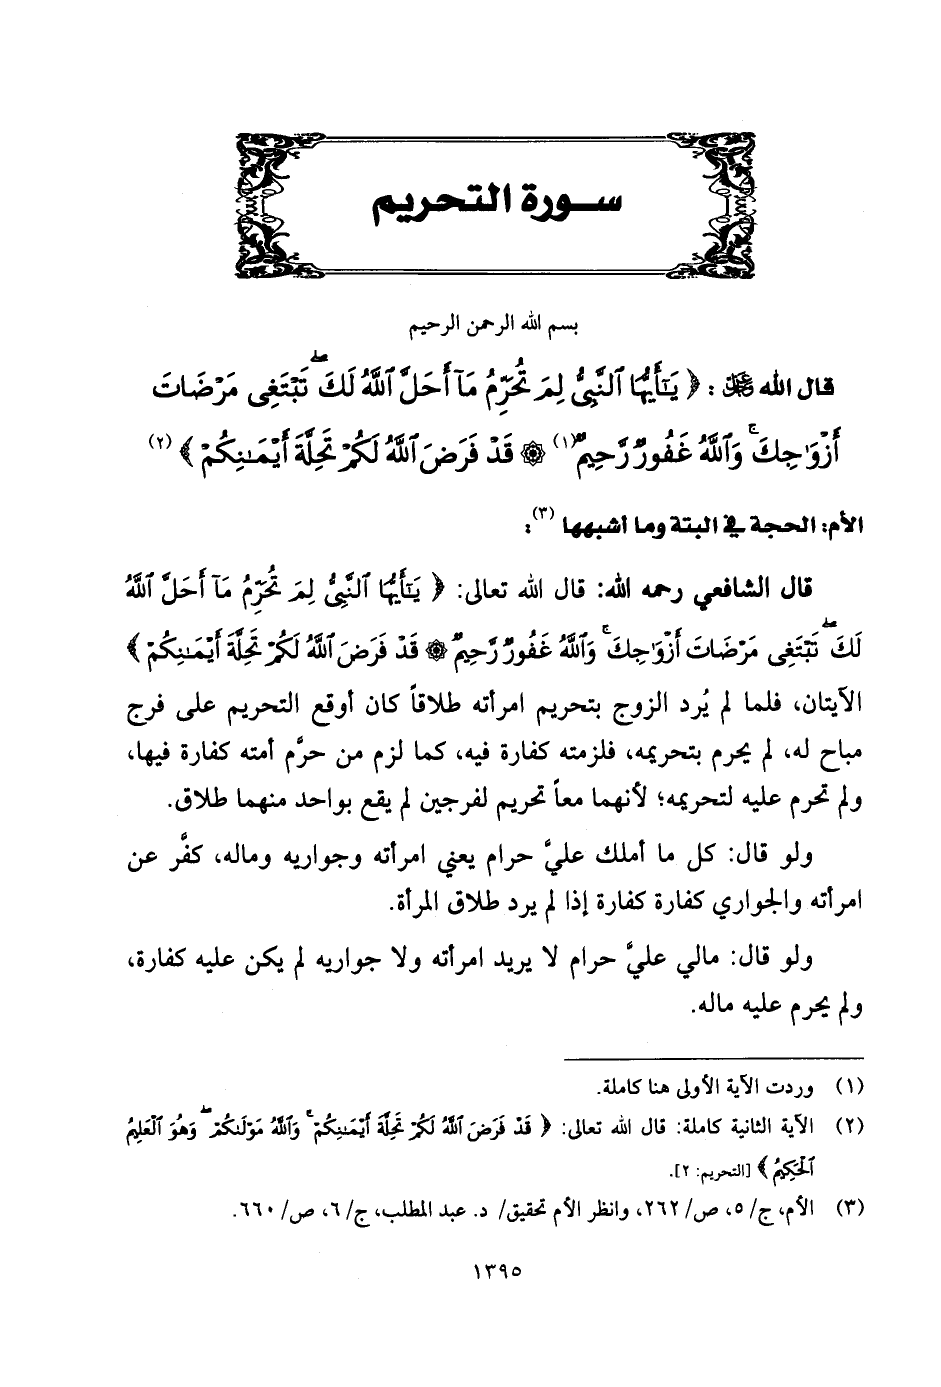 سورة التحريم
بسم الله الرحمن الرحيم
قال الله ﷻ: ﴿ يَـٰٓأَيُّهَا ٱلنَّبِىُّ لِمَ تُحَرِّمُ مَآ أَحَلَّ ٱللَّهُ لَكَ ۖ تَبْتَغِى مَرْضَاتَ
أَزْوَٰجِكَ ۚ وَٱللَّهُ غَفُورٌ رَّحِيمٌ (١) ۞ قَدْ فَرَضَ ٱللَّهُ لَكُمْ تَحِلَّةَ أَيْمَـٰنِكُمْ ﴾ (٢)
الأم: الحجة في البتة وما أشبهها (٣):
قال الشافعي رحمه الله: قال الله تعالى: ﴿ يَـٰٓأَيُّهَا ٱلنَّبِىُّ لِمَ تُحَرِّمُ مَآ أَحَلَّ ٱللَّهُ
لَكَ ۖ تَبْتَغِى مَرْضَاتَ أَزْوَٰجِكَ ۚ وَٱللَّهُ غَفُورٌ رَّحِيمٌ ۞ قَدْ فَرَضَ ٱللَّهُ لَكُمْ تَحِلَّةَ أَيْمَـٰنِكُمْ ﴾
الآيتان، فلما لم يُرد الزوج بتحريم امرأته طلاقاً كان أوقع التحريم على فرج
مباح له، لم يحرم بتحريمه، فلزمته كفارة فيه، كما لزم من حرَّم أمته كفارة فيها،
ولم تحرم عليه لتحريمه؛ لأنهما معاً تحريم لفرجين لم يقع بواحد منهما طلاق.
ولو قال: كل ما أملك عليَّ حرام يعني امرأته وجواريه وماله، كفَّر عن
امرأته والجواري كفارة كفارة إذا لم يرد طلاق المرأة.
ولو قال: مالي عليَّ حرام لا يريد امرأته ولا جواريه لم يكن عليه كفارة،
ولم يحرم عليه ماله.
(١) وردت الآية الأولى هنا كاملة.
(٢) الآية الثانية كاملة: قال الله تعالى: ﴿ قَدْ فَرَضَ ٱللَّهُ لَكُمْ تَحِلَّةَ أَيْمَـٰنِكُمْ ۚ وَٱللَّهُ مَوْلَىٰكُمْ ۖ وَهُوَ ٱلْعَلِيمُ
ٱلْحَكِيمُ ﴾ [التحريم: ٢].
(٣) الأم، ج/ ٥، ص/ ٢٦٢، وانظر الأم تحقيق/ د. عبد المطلب، ج/ ٦، ص/ ٦٦٠.
١٣٩٥